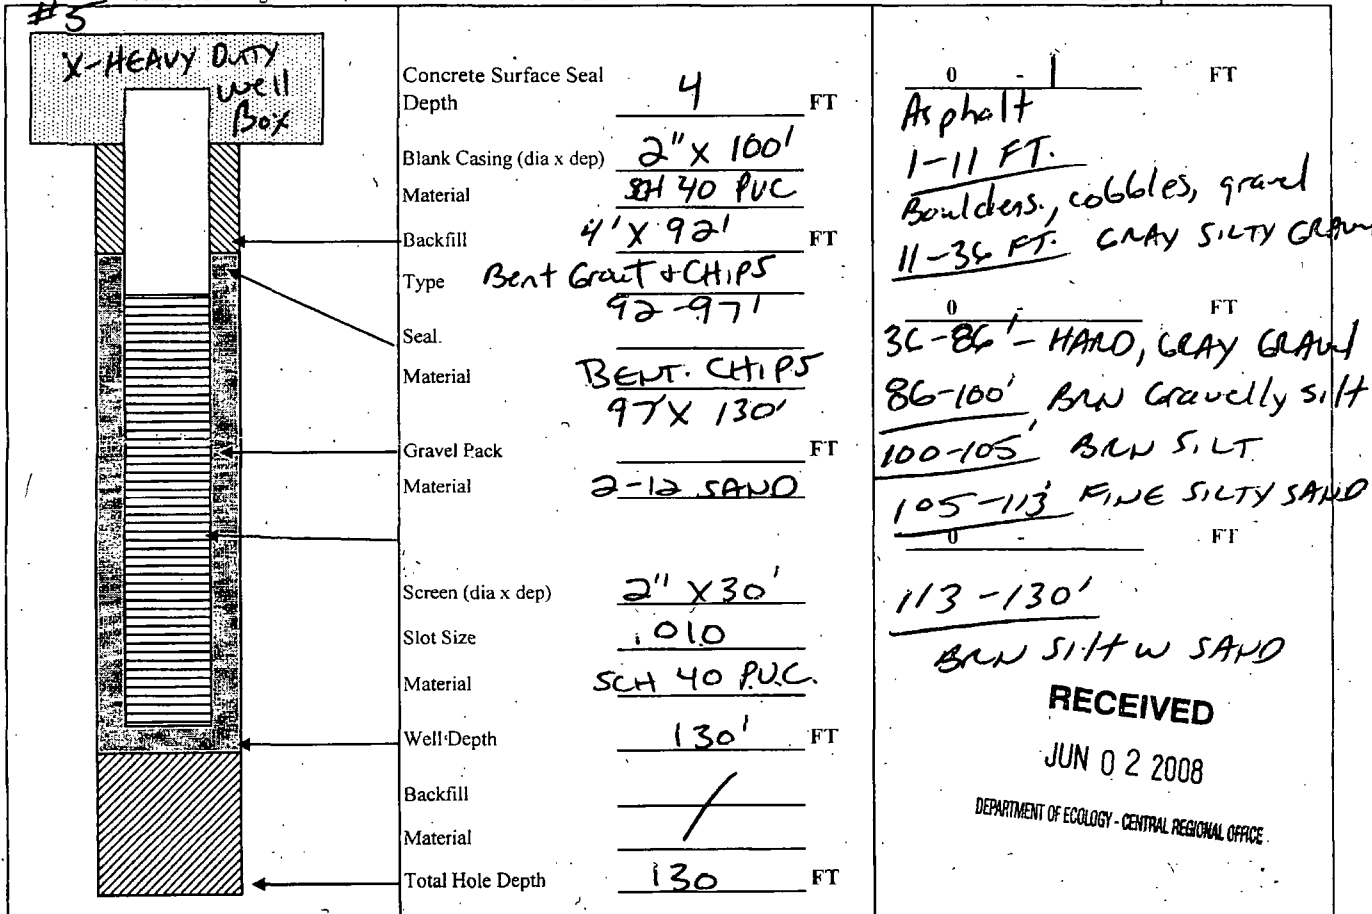 #5
X-HEAVY DUTY
well
Box
Concrete Surface Seal
Depth 4 FT
Blank Casing (dia x dep) 2" X 100'
Material SH 40 PVC
Backfill 4' X 92' FT
Type Bent Grout + CHIPS
92-97'
Seal.
Material BENT. CHIPS
97 X 130'
Gravel Pack FT
Material 2-12 SAND
Screen (dia x dep) 2" X 30'
Slot Size .010
Material SCH 40 P.V.C.
Well Depth 130' FT
Backfill /
Material
Total Hole Depth 130 FT
0 - 1 FT
Asphalt
1-11 FT.
Boulders., cobbles, gravel
11-36 FT. GRAY SILTY GRAVEL
0 - FT
36-86' - HARD, GRAY GRAVEL
86-100' BRN Gravelly silt
100-105' BRN SILT
105-113' FINE SILTY SAND
0 - FT
113-130'
BRN Silt w SAND
RECEIVED
JUN 02 2008
DEPARTMENT OF ECOLOGY - CENTRAL REGIONAL OFFICE